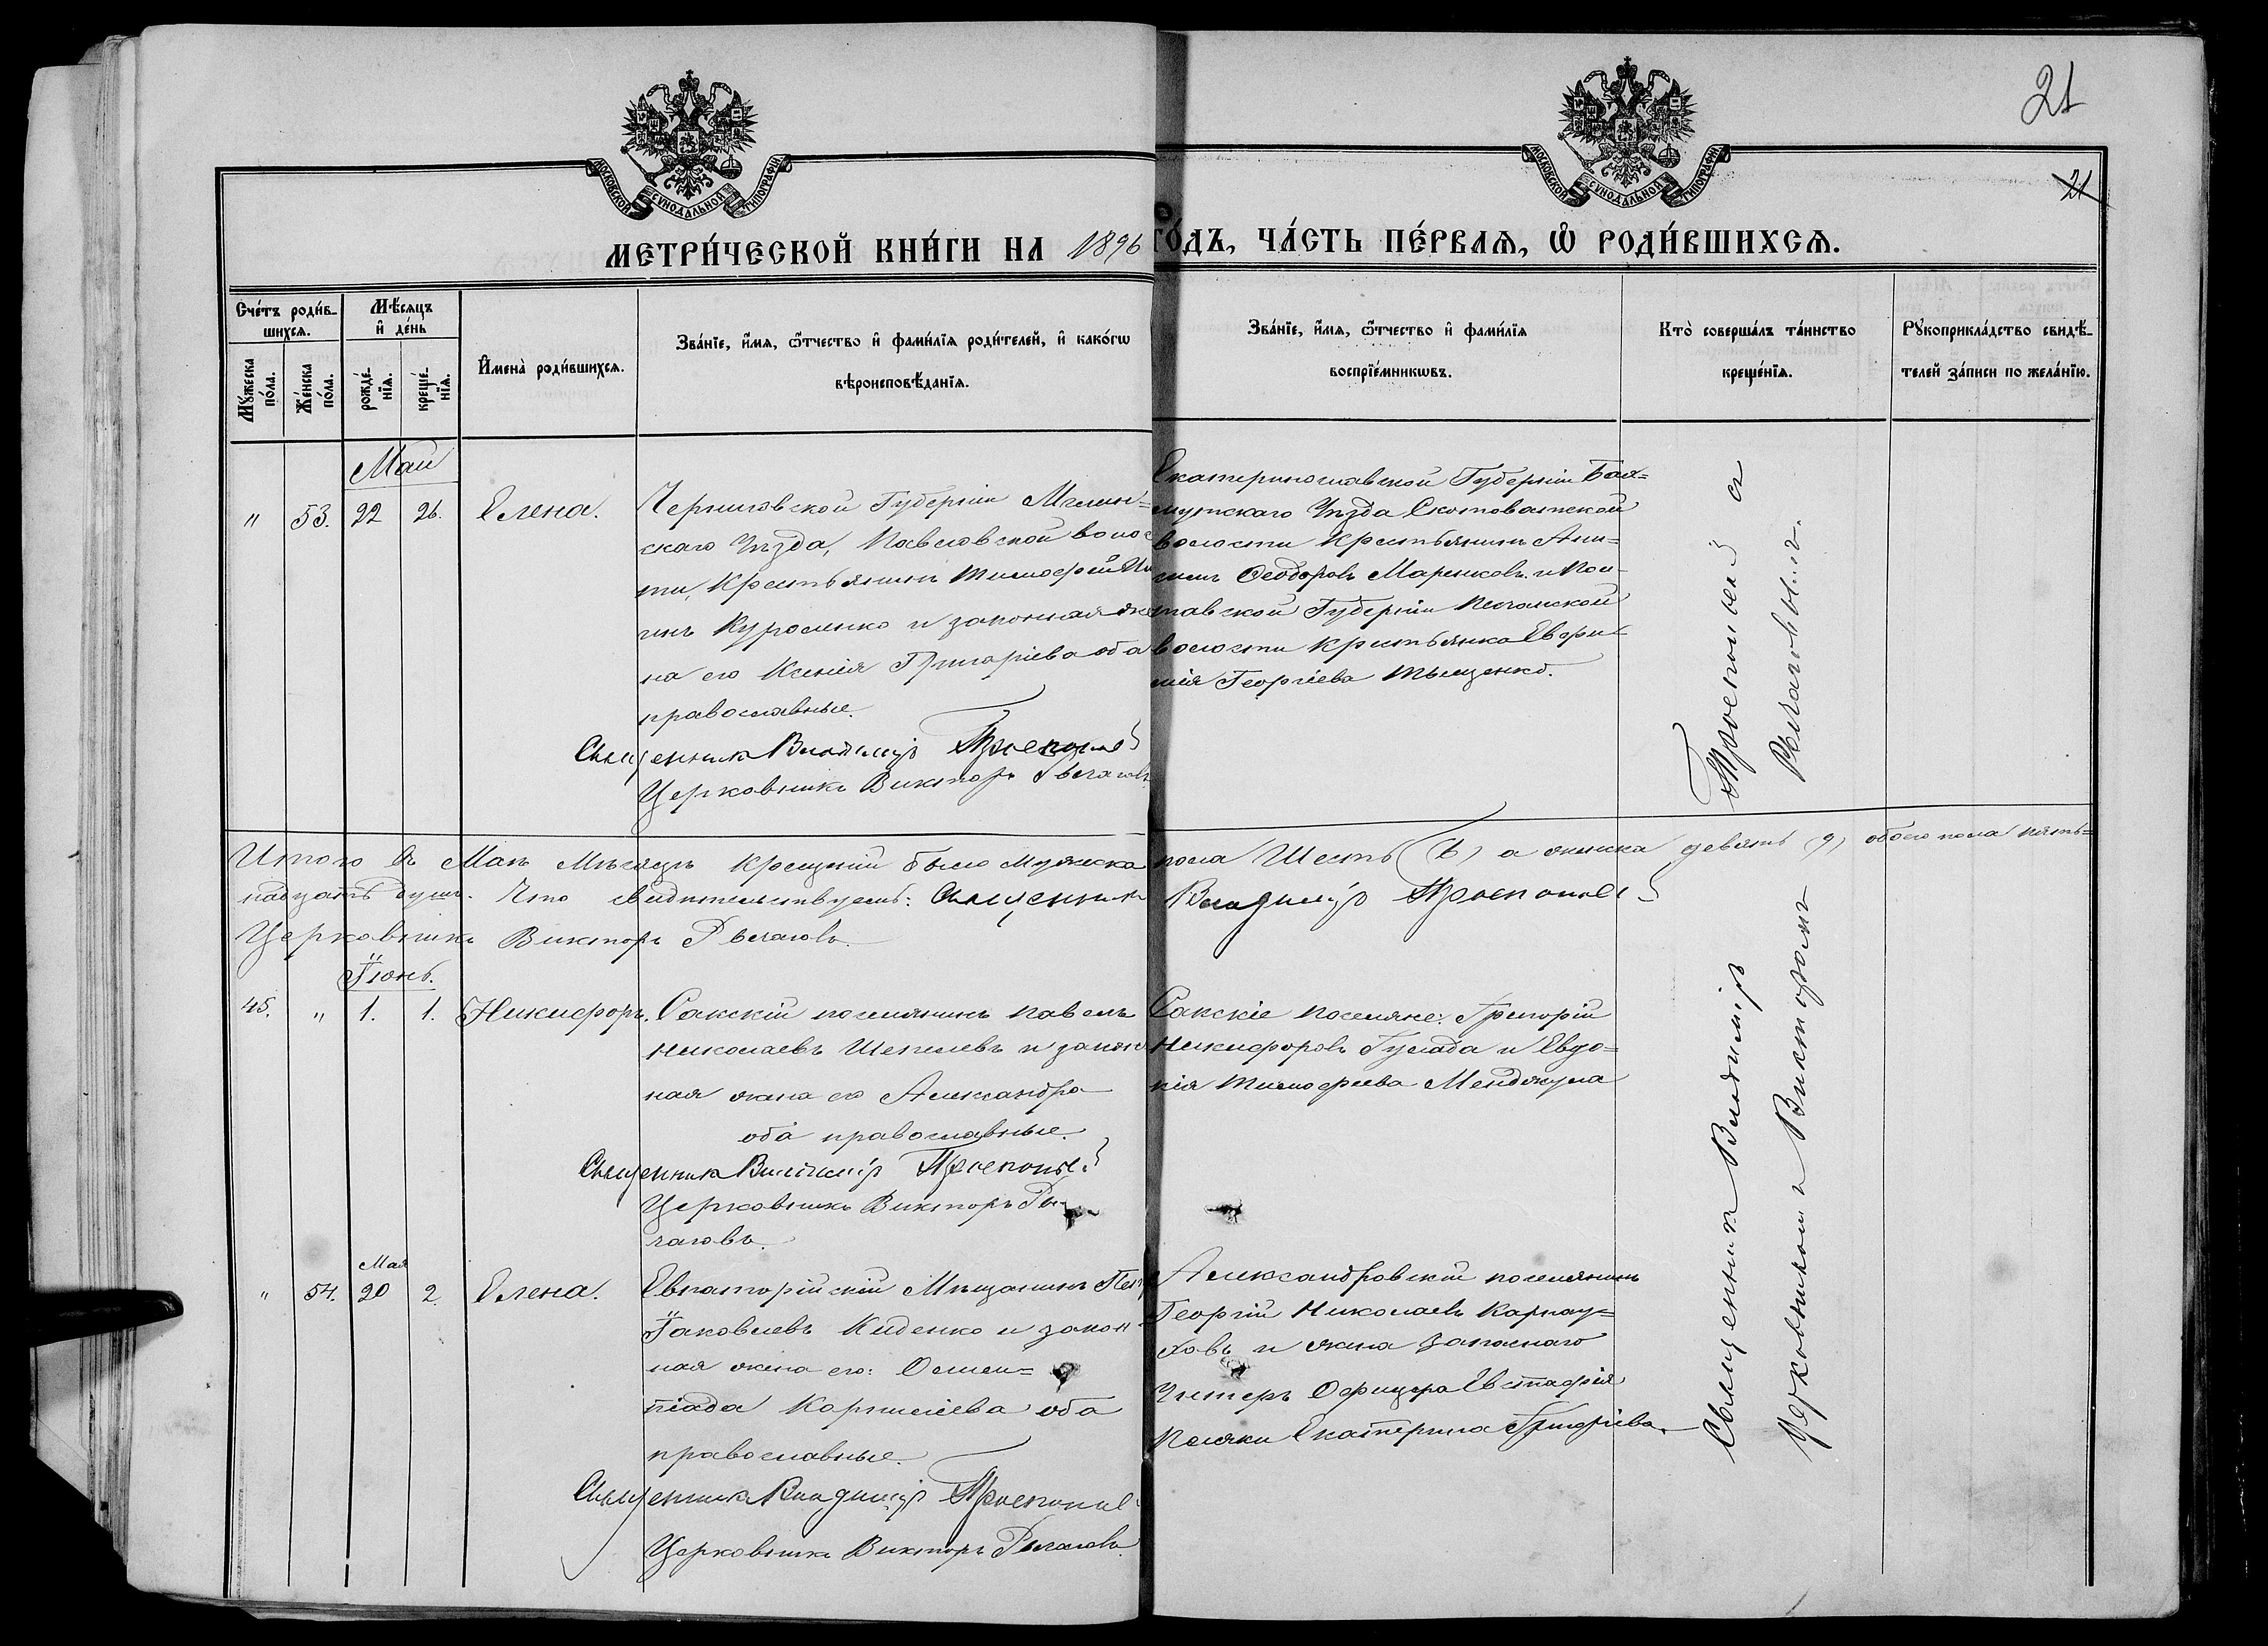 21
21
МОСКОВСКОЙ СѴНОДАЛЬНОЙ ТИПОГРАФІИ
МОСКОВСКОЙ СѴНОДАЛЬНОЙ ТИПОГРАФІИ
МЕТРИ́ЧЕСКОЙ КНИ́ГИ НА 1896 ГО́ДЪ, ЧА́СТЬ ПЕ́РВАЯ, Ѡ РОДИ́ВШИХСЯ.
Сче́тъ роди́в-
шихся.
Му́жеска по́ла.
Же́нска по́ла.
Мѣ́сяцъ
и де́нь
рожде́-
нїя.
креще́-
нїя.
Имена̀ роди́вшихся.
Зва́нїе, и́мя, ѻ́тчество и фами́лїя роди́телей, и како́гѡ
вѣроисповѣ́данїя.
Зва́нїе, и́мя, ѻ́тчество и фами́лїя
воспрїе́мникѡвъ.
Кто̀ соверша́лъ та́инство
креще́нїя.
Рꙋкоприкла́дство свидѣ́-
телей за́писи по жела́нїю.
Май
" 53. 22 26. Елена.
Черниговской Губерніи Мглин=
скаго Уѣзда, Павловской волос
ти, Крестьянинъ Тимофей
Куроленко и законная же
на его Ксенія Григоріева оба
православные.
Священникъ Владиміръ Троепольс
Церковникъ Викторъ Рычаговъ
Екатеринославской Губерніи Бах=
мутскаго Уѣзда Скотоватской
волости Крестьянинъ Ани=
Ѳеодоровъ Маренковъ и Пол
тавской Губерніи
волости крестьянка Евфи=
мія Георгіева Тыщенко.
Итого въ Маѣ Мѣсяцѣ крещеній было Мужеска пола Шесть (6) а женска девять (9) обоего пола пят=
надцать душъ. Что свидѣтельствуемъ: Священникъ Владиміръ Троепольс
Церковникъ Викторъ Рычаговъ.
Іюнь.
45. " 1. 1. Никифоръ.
Сакскій поселянинъ Павелъ
Николаевъ Шепелевъ и закон
ная жена его Александра
оба православные.
Священникъ Владиміръ Троепольс
Церковникъ Викторъ Ры-
чаговъ.
Сакскіе Поселяне: Григорій
Никифоровъ Гулада и Евдо=
кія Тимофеева Менджула
Мая
" 54. 20 2. Елена.
Евпаторійскій Мѣщанинъ Пет
Іаковлевъ Киденко и закон
ная жена его: Олим=
піада Корниліева оба
православные.
Священникъ Владиміръ Троепольс
Церковникъ Викторъ Рычаговъ.
Александровскій поселянинъ
Георгій Николаевъ Карнау=
ховъ и жена запаснаго
Унтеръ Офицера Евстафія
Поляки Екатерина Григоріева.
Священникъ Владиміръ Троепольскій съ
Церковникомъ Викторомъ Рычаговымъ.